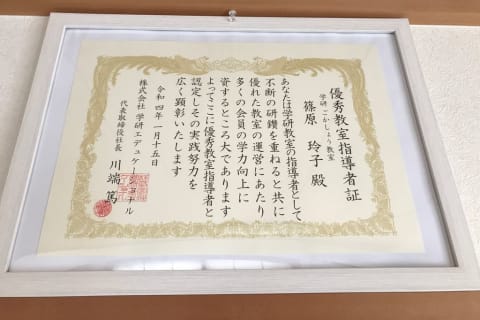 優秀教室指導者証
学研 ごかしょう教室
篠原 玲子 殿
あなたは学研教室の指導者として
不断の研鑽を重ねると共に
優れた教室の運営にあたり
多くの会員の学力向上に
資するところ大であります
よってここに優秀教室指導者と
認定しその実践努力を
広く顕彰いたします
令和四年一月十五日
株式会社 学研エデュケーショナル
代表取締役社長 川端 篤